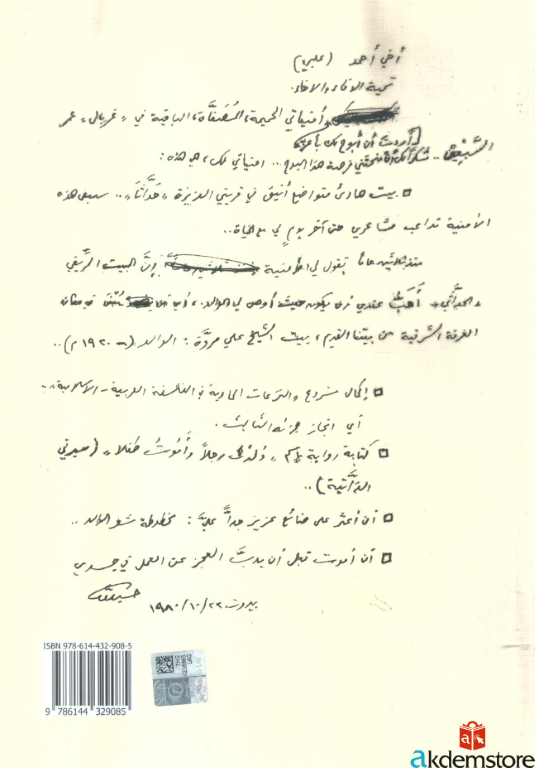 أخي أحمد (علبي)
تحية الوفاء والاخاء.
وأمنياتي الحميمة، المُصَفَّاة، الباقية في "غربال" عمر
[أردتَ أن أبوح لك بأحبّ
السَّبعين.. شكراً لك أن منحتني فرصة هذا البوح.. امنياتي لك، هي هذه:
بيت هادئ متواضع أنيق في قريتي العزيزة "حَدَّاثا".. سبعى هذه
الأمنية تداعب مشاعري حتى آخر يومٍ لي مع الحياة..
منذ ثلاثين عاماً تقول لي الأمنية إنَّ البيت الريفي
"الحدَّاثي" أَحَبُّ عندي أن يكون حيث أوصى لي الوالد، أي في مكان
الغرفة الشرقية من بيتنا القديم، بيت الشيخ علي مروَّة: الوالد (- ١٩٢٠ م)..
إكمال مشروع "النزعات المادية في الفلسفة العربية - الاسلامية"..
أي انجاز جزئه الثالث.
كتابة رواية "وُلدتُ رجلاً وأَموتُ طفلا" (سيرتي
الذَّاتية)..
أن أعثر على ضائع عزيز جداً عليَّ: مخطوطة شعر الوالد..
أن أموت قبل أن يدبَّ العجز عن العمل في جسدي
حسين
بيروت ٢٢/١٠/١٩٨٠
ISBN 978-614-432-908-5
9 786144 329085
akdemstore